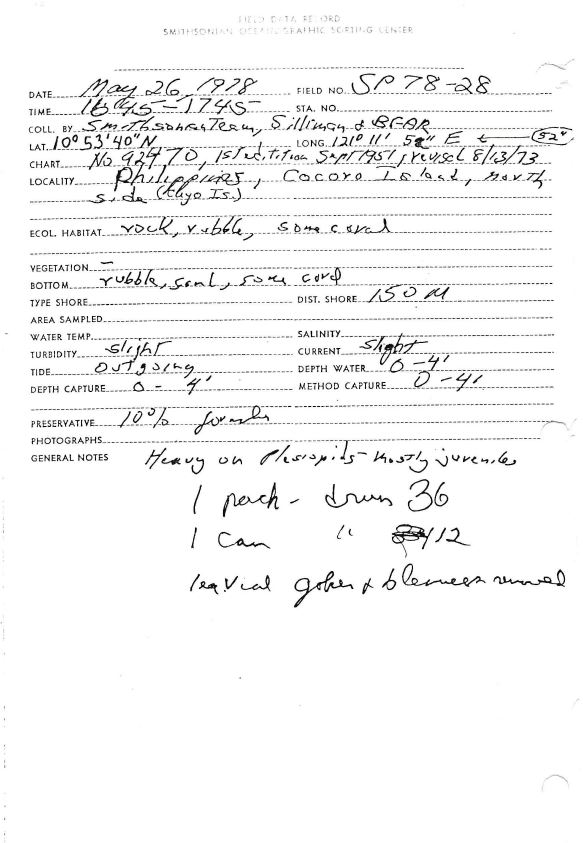 FIELD DATA RECORD
SMITHSONIAN OCEANOGRAPHIC SORTING CENTER
DATE May 26, 1978 FIELD NO. SP 78-28
TIME 1645-1745 STA. NO.
COLL. BY Smithsonian Team, Silliman & BFAR
LAT. 10° 53' 40" N LONG. 121° 11' 52" E ← 52"
CHART No 92470, 1st edition Sept 1951, revised 8/13/73
LOCALITY Philippines, Cocoro Island, north
side (Cuyo Is.)
ECOL. HABITAT rock, rubble, some coral
VEGETATION —
BOTTOM rubble, sand, some coral
TYPE SHORE DIST. SHORE 150 M
AREA SAMPLED
WATER TEMP. SALINITY
TURBIDITY slight CURRENT slight
TIDE outgoing DEPTH WATER 0-4'
DEPTH CAPTURE 0-4' METHOD CAPTURE 0-4'
PRESERVATIVE 10%
PHOTOGRAPHS
GENERAL NOTES Heavy on Plesiopids - mostly juveniles
1 - drum 36
1 can " 412
1 ea vial & removed